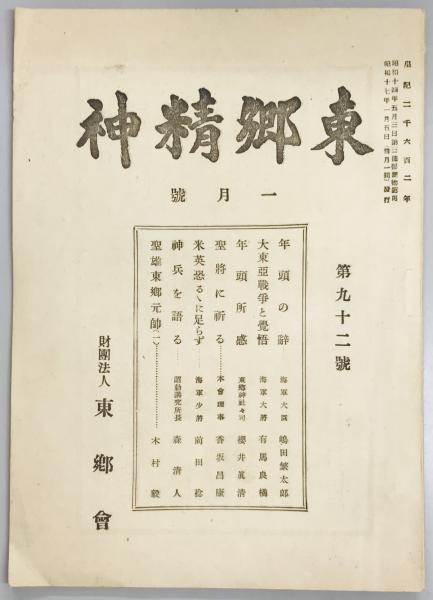 皇紀二千六百二年
昭和十四年五月三日第三種郵便物認可
昭和十七年一月五日(毎月一回)發行
東鄕精神
一月號
第九十二號
年頭の辭 海軍大臣 嶋田繁太郎
大東亞戰爭と覺悟 海軍大將 有馬良橘
年頭所感 東鄕神社々司 櫻井眞淸
聖將に祈る 本會理事 香坂昌康
米英恐るゝに足らず 海軍少將 前田稔
神兵を語る 所長 森淸人
聖雄東鄕元帥(一) 木村毅
財團法人 東鄕會